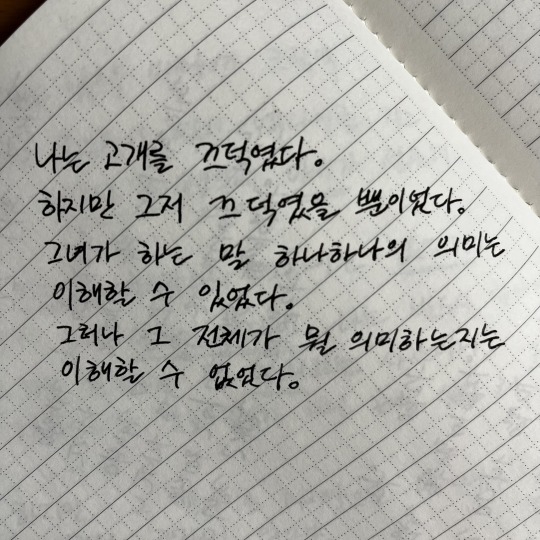 나는 고개를 끄덕였다.
하지만 그저 끄덕였을 뿐이었다.
그녀가 하는 말 하나하나의 의미는
이해할 수 있었다.
그러나 그 전체가 뭘 의미하는지는
이해할 수 없었다.